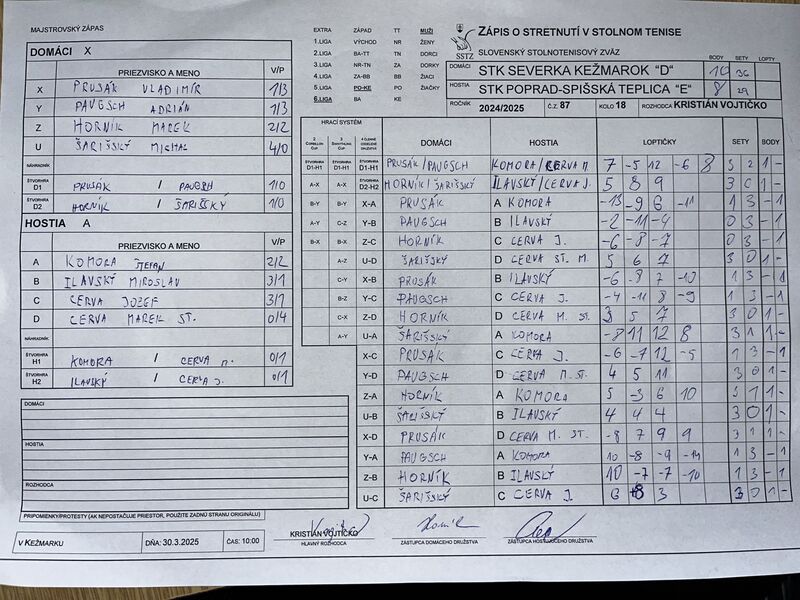 MAJSTROVSKÝ ZÁPAS
EXTRA ZÁPAD TT MUŽI
1.LIGA VÝCHOD NR ŽENY
2.LIGA BA-TT TN DORCI
3.LIGA NR-TN ZA DORKY
4.LIGA ZA-BB BB ŽIACI
5.LIGA PO-KE PO ŽIAČKY
6.LIGA BA KE
SSTZ
ZÁPIS O STRETNUTÍ V STOLNOM TENISE
SLOVENSKÝ STOLNOTENISOVÝ ZVÄZ
BODY SETY LOPTY
DOMÁCI STK SEVERKA KEŽMAROK "D" 10 36
HOSTIA STK POPRAD-SPIŠSKÁ TEPLICA "E" 8 29
ROČNÍK 2024/2025 Č.Z. 87 KOLO 18 ROZHODCA KRISTIÁN VOJTIČKO
DOMÁCI X
PRIEZVISKO A MENO V/P
X PRUSÁK VLADIMÍR 1/3
Y PAUGSCH ADRIÁN 1/3
Z HORNÍK MAREK 2/2
U ŠARIŠSKÝ MICHAL 4/0
NÁHRADNÍK
ŠTVORHRA D1 PRUSÁK / PAUGSH 1/0
ŠTVORHRA D2 HORNÍK / ŠARIŠSKÝ 1/0
HOSTIA A
PRIEZVISKO A MENO V/P
A KOMORA ŠTEFAN 2/2
B ILAVSKÝ MIROSLAV 3/1
C CERVA JOZEF 3/1
D CERVA MAREK ST. 0/4
NÁHRADNÍK
ŠTVORHRA H1 KOMORA / CERVA M. 0/1
ŠTVORHRA H2 ILAVSKÝ / CERVA J. 0/1
DOMÁCI
HOSTIA
ROZHODCA
PRIPOMIENKY/PROTESTY (AK NEPOSTAČUJE PRIESTOR, POUŽITE ZADNÚ STRANU ORIGINÁLU)
V KEŽMARKU DŇA: 30.3.2025 ČAS: 10:00
HRACÍ SYSTÉM
DOMÁCI HOSTIA LOPTIČKY SETY BODY
ŠTVORHRA D1-H1 ŠTVORHRA D1-H1 ŠTVORHRA D1-H1 PRUSÁK/PAUGSCH KOMORA/CERVA M 7 -5 12 -6 8 3 2 1 -
A-X A-X ŠTVORHRA D2-H2 HORNÍK/ŠARIŠSKÝ ILAVSKÝ/CERVA J. 5 8 9 3 0 1 -
B-Y B-Y X-A PRUSÁK A KOMORA -13 -9 6 -11 1 3 - 1
A-Y C-Z Y-B PAUGSCH B ILAVSKÝ -2 -11 -4 0 3 - 1
B-X B-X Z-C HORNÍK C CERVA J. -6 -8 -7 0 3 - 1
A-Z U-D ŠARIŠSKÝ D CERVA ST. M. 5 6 7 3 0 1 -
C-Y X-B PRUSÁK B ILAVSKÝ -6 -8 7 -10 1 3 - 1
B-Z Y-C PAUGSCH C CERVA J. -4 -11 8 -9 1 3 - 1
C-X Z-D HORNÍK D CERVA M. ST 3 5 7 3 0 1 -
A-Y U-A ŠARIŠSKÝ A KOMORA -8 11 12 8 3 1 1 -
X-C PRUSÁK C CERVA J. -6 -7 12 -5 1 3 - 1
Y-D PAUGSCH D CERVA M. ST. 4 5 11 3 0 1 -
Z-A HORNÍK A KOMORA 5 -3 6 10 3 1 1 -
U-B ŠARIŠSKÝ B ILAVSKÝ 4 4 4 3 0 1 -
X-D PRUSÁK D CERVA M. ST. -8 7 9 9 3 1 1 -
Y-A PAUGSCH A KOMORA 10 -8 -9 -14 1 3 - 1
Z-B HORNÍK B ILAVSKÝ 10 -7 -7 -10 1 3 - 1
U-C ŠARIŠSKÝ C CERVA J. 6 8 3 3 0 1 -
KRISTIÁN VOJTIČKO
HLAVNÝ ROZHODCA
ZÁSTUPCA DOMÁCEHO DRUŽSTVA
ZÁSTUPCA HOSŤUJÚCEHO DRUŽSTVA